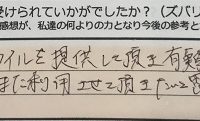 受けられていかがでしたか？（ズバリ
感想が、私達の何よりの力となり今後の参考と
イルを提供して頂き有難
また利用させて頂きたいと思